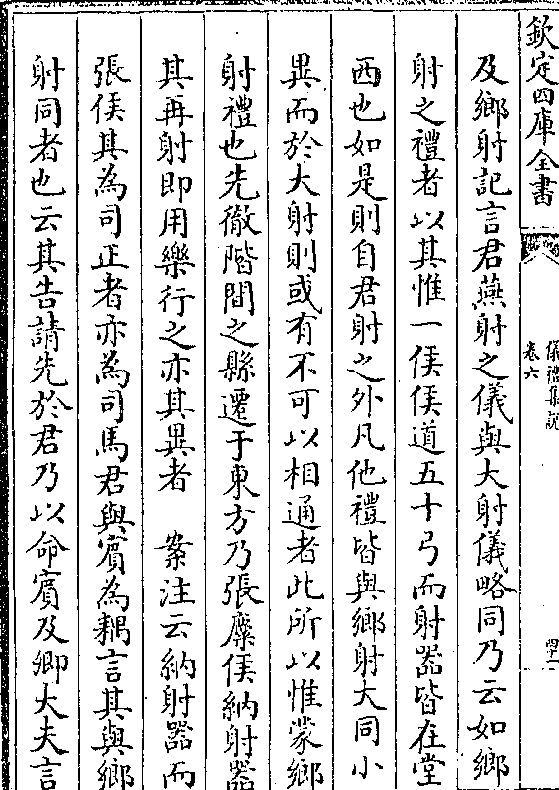 欽定四庫全書
儀禮集說
卷六
及鄉射記言君燕射之儀與大射儀略同乃云如鄉
射之禮者以其惟一侯侯道五十弓而射器皆在堂
西也如是則自君射之外凡他禮皆與鄉射大同小
異而於大射則或有不可以相通者此所以惟蒙鄉
射禮也先徹階間之縣遷于東方乃張麋侯納射器
其再射即用樂行之亦其異者　案注云納射器而
張侯其為司正者亦為司馬君與賓為耦言其與鄉
射同者也云其告請先於君乃以命賓及卿大夫言